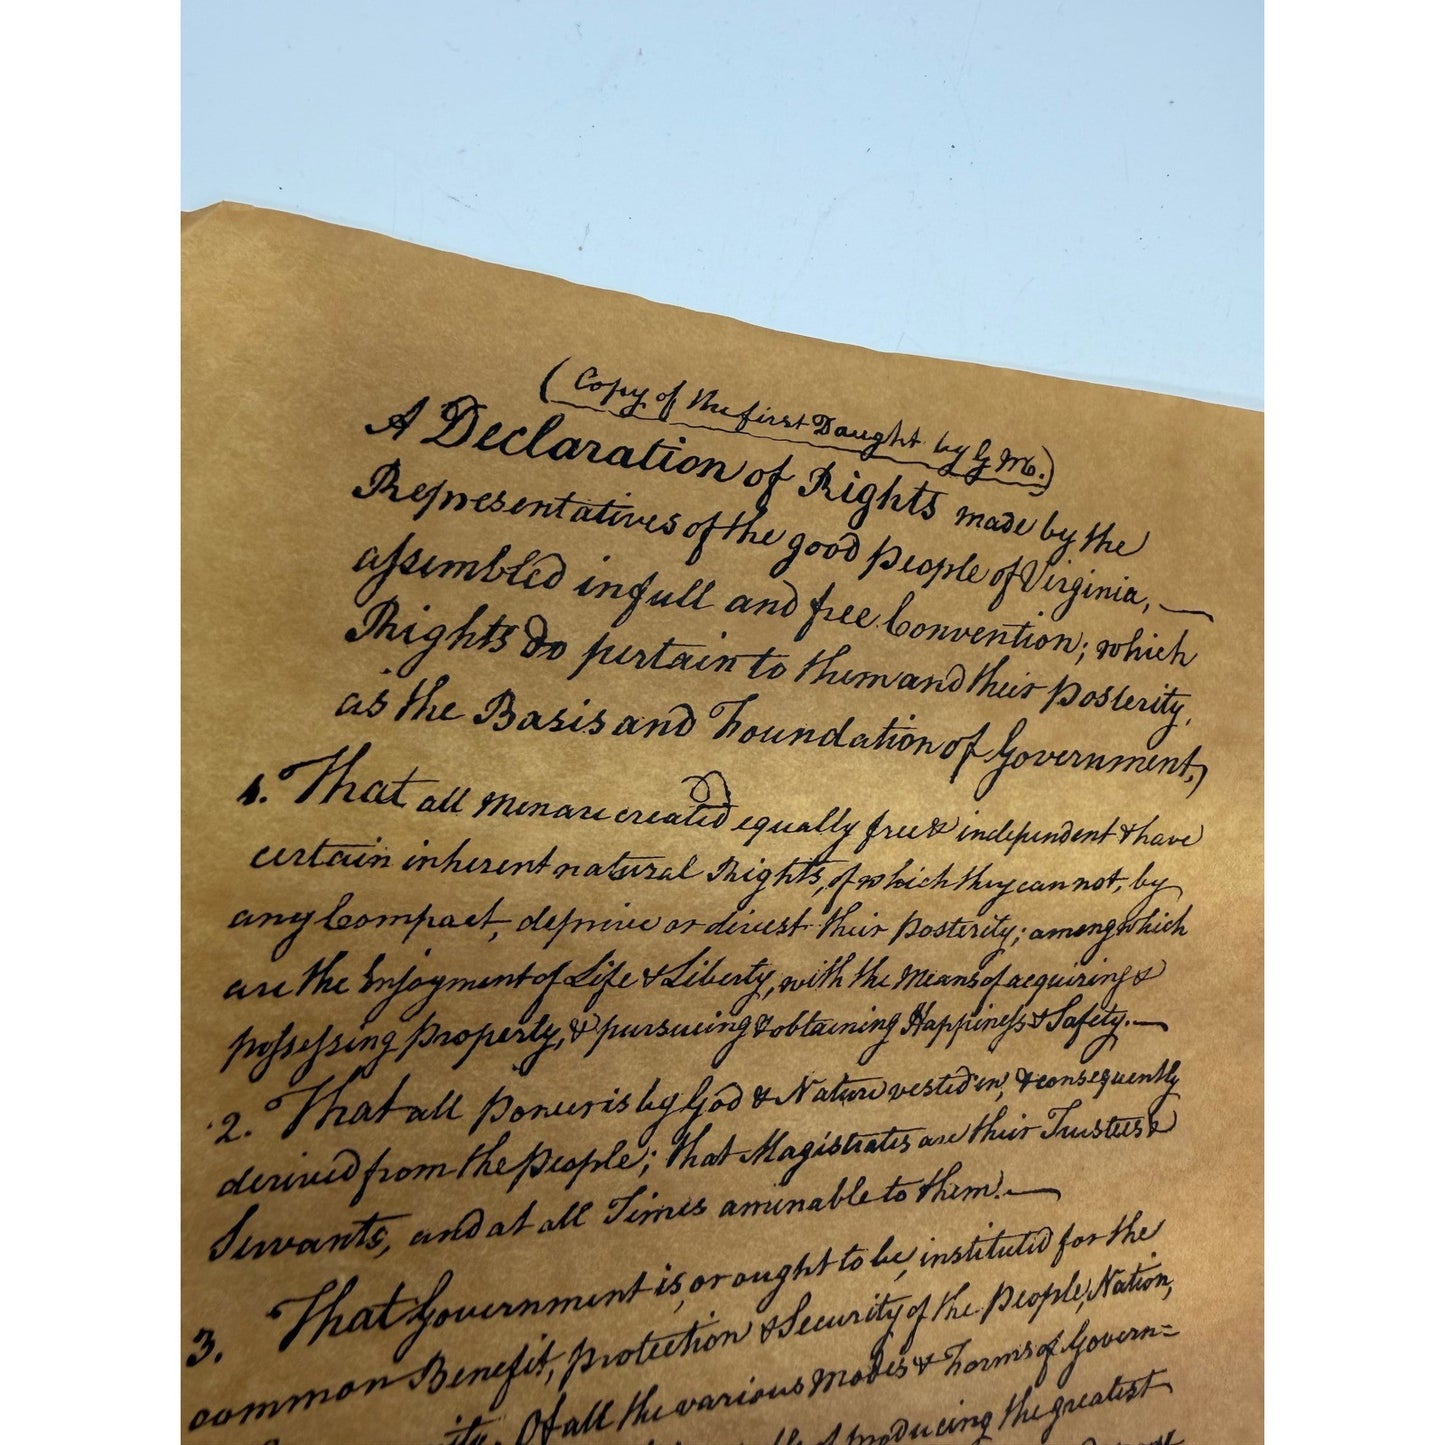 (Copy of the first Daught by G M.)
A Declaration of Rights made by the
Representatives of the good people of Virginia,
assembled in full and free Convention; which
Rights do pertain to them and their posterity,
as the Basis and Foundation of Government,
1. That all Men are created equally free & independent & have
certain inherent natural Rights, of which they can not, by
any Compact, deprive or divest their posterity; among which
are the Enjoyment of Life & Liberty, with the Means of acquiring &
possessing property, & pursueing & obtaining Happiness & Safety.
2. That all power is by God & Nature vested in, & consequently
derived from the people; that Magistrates are their Trustees &
Servants, and at all Times amenable to them.
3. That Government is, or ought to be, instituted for the
common Benefit, protection & Security of the people, Nation,
Of all the various Modes & Forms of Govern=
of producing the greatest